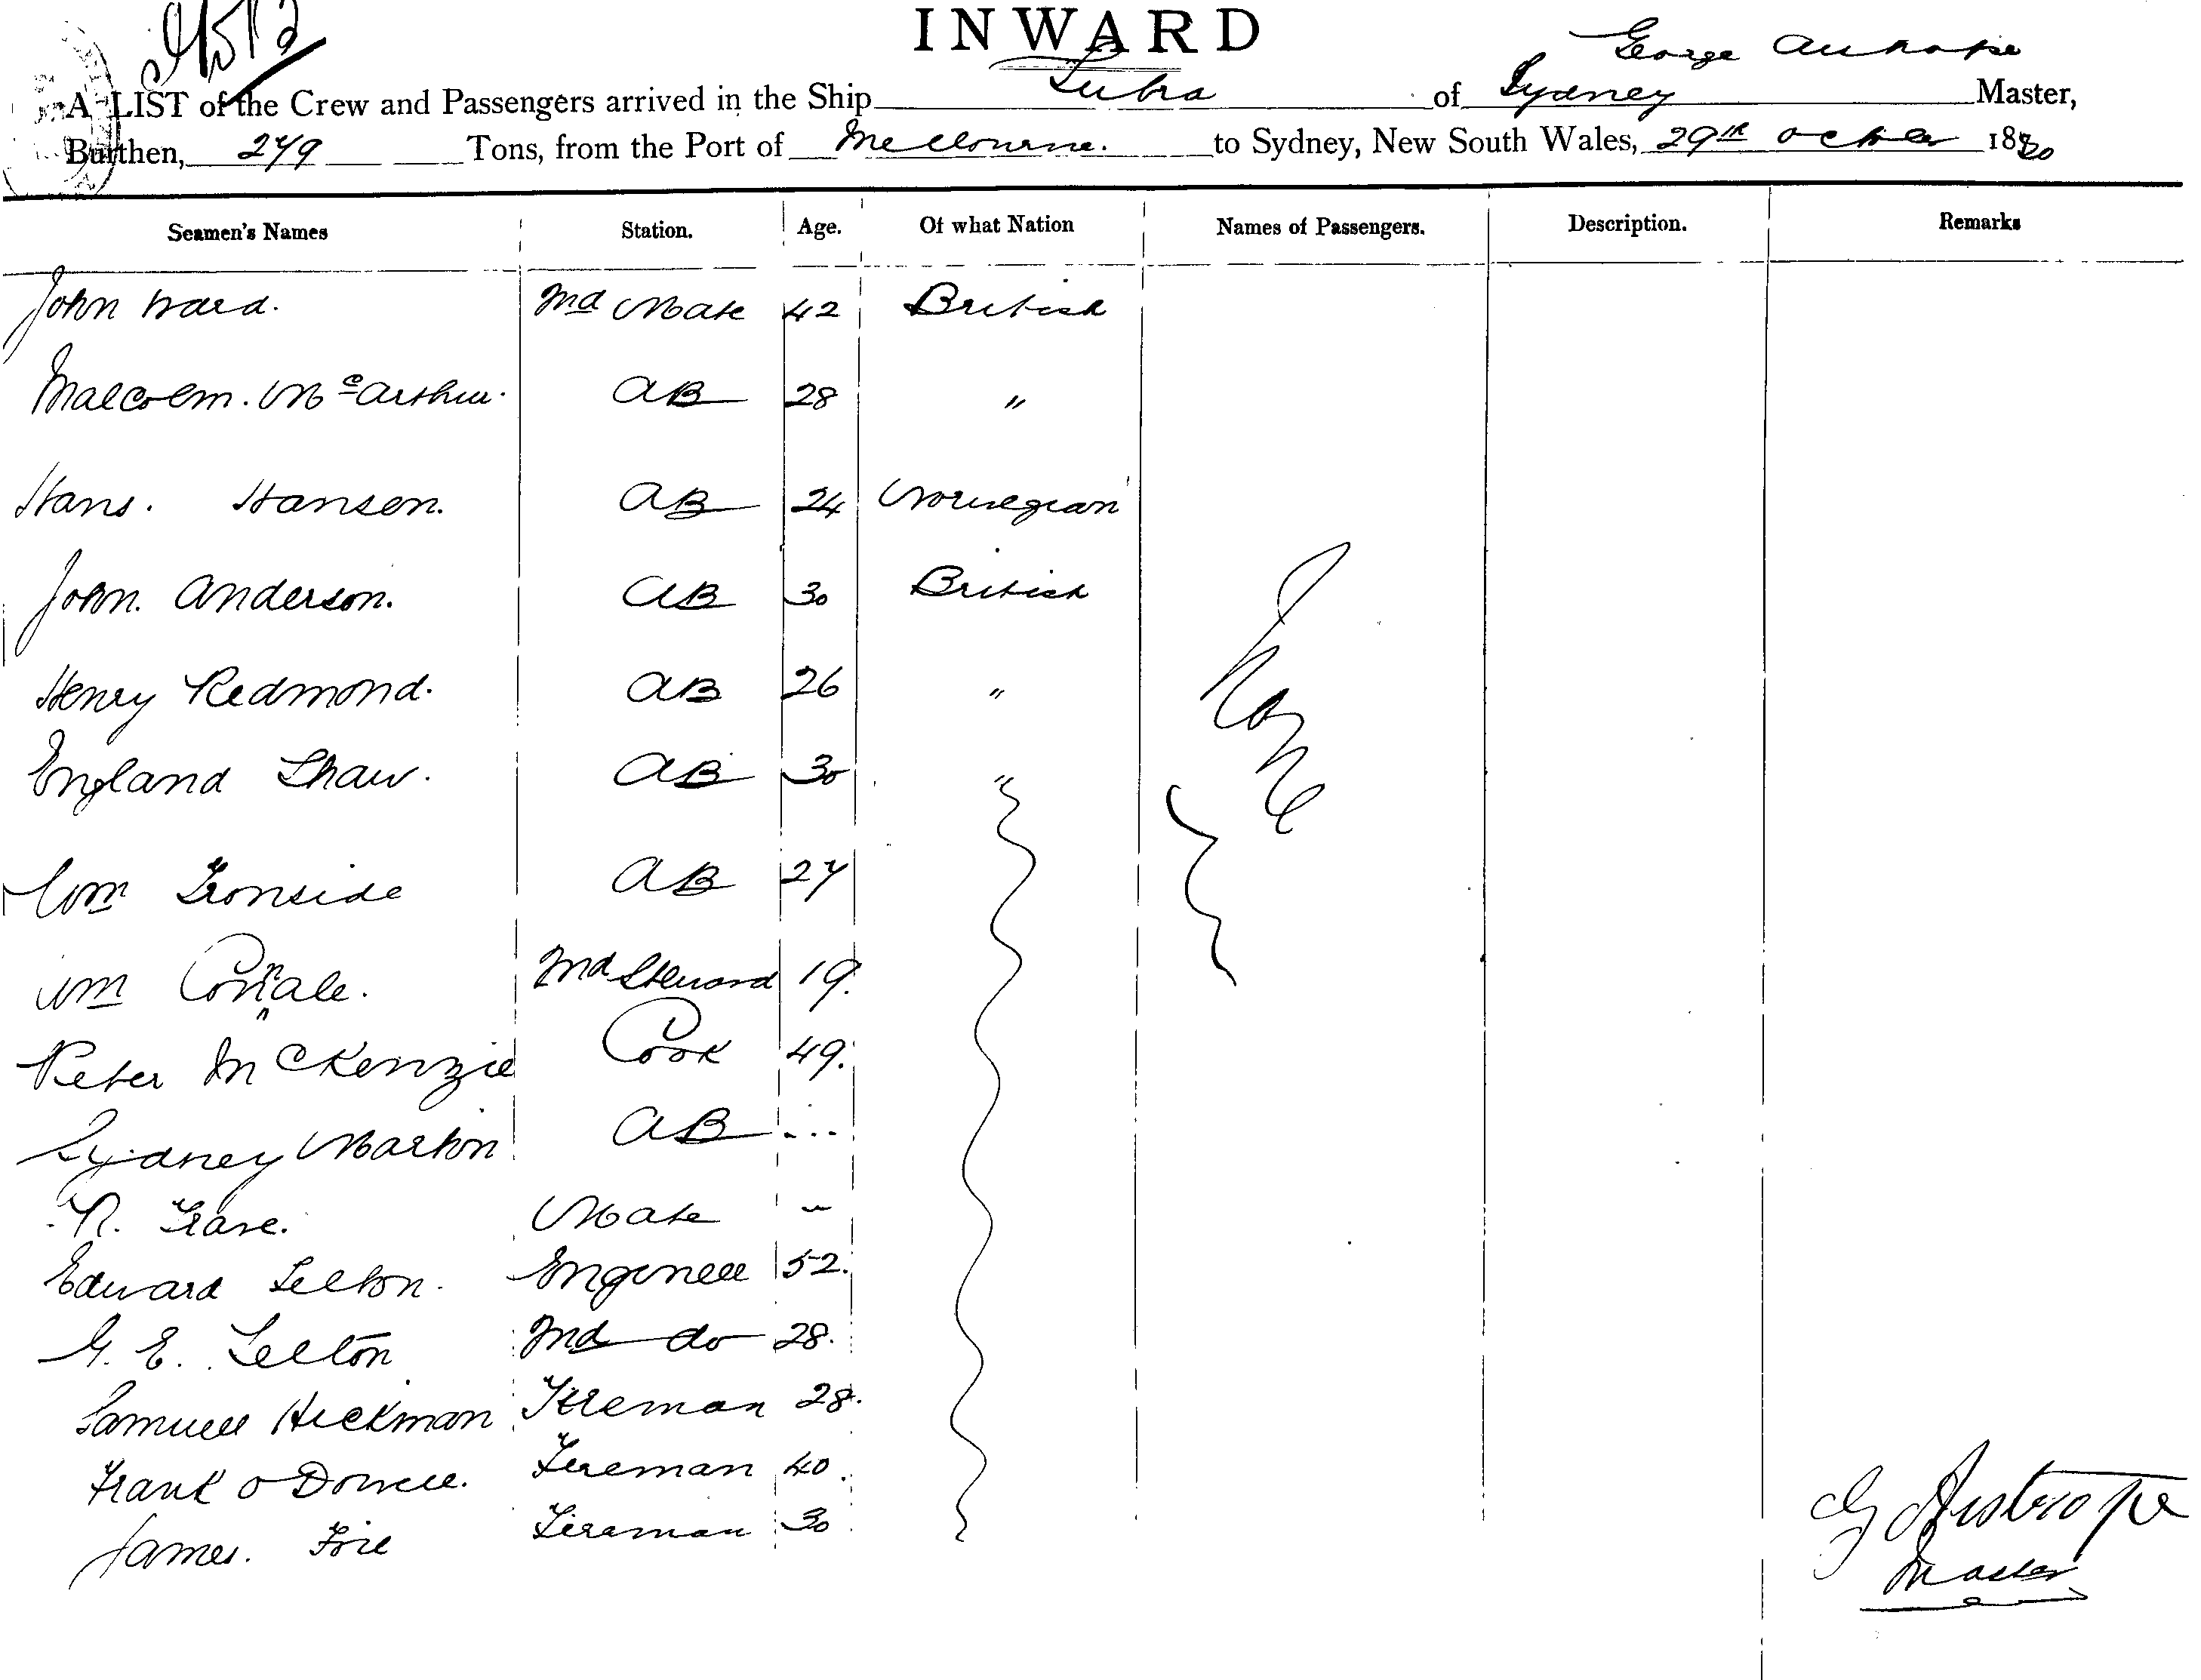 INWARD
George
A LIST of the Crew and Passengers arrived in the Ship Lubra of Sydney Master,
Burthen, 279 Tons, from the Port of Melbourne. to Sydney, New South Wales, 29th October 1880
Seamen's Names Station. Age. Of what Nation Names of Passengers. Description. Remarks
John Ward. 2nd Mate 42 British
Malcolm. McArthur. AB 28 "
Hans. Hanson. AB 24 Norwegian
John. Anderson. AB 30 British
Henry Redmond. AB 26 "
None
England Shaw. AB 30 "
Wm Ironside AB 27
Wm 2nd Steward 19.
Peter McKenzie Cook 49.
Sydney Martin AB ...
Mate
Edward Engineer 52.
G. E. 2nd do 28.
Samuel Hickman Fireman 28.
Frank Fireman 40.
James. Fireman 30
G Anstrope
Master